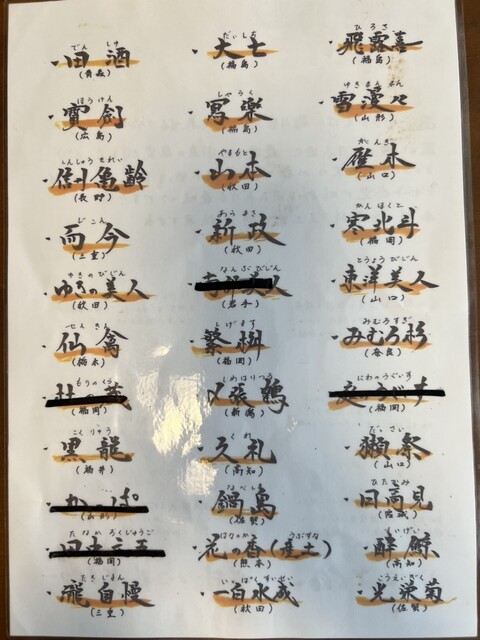 でんしゅ
・田酒
(青森)
だいしち
・大七
(福島)
ひろき
・飛露喜
(福島)
ほうけん
・寳剣
(広島)
しゃらく
・寫楽
(福島)
ゆきまんまん
・雪漫々
(山形)
しんしゅうきれい
・信州亀齢
(長野)
やまもと
・山本
(秋田)
がんぎ
・雁木
(山口)
じこん
・而今
(三重)
あらまさ
・新政
(秋田)
かんほくと
・寒北斗
(福岡)
ゆきのびじん
・ゆきの美人
(秋田)
なんぶびじん
(岩手)
とうようびじん
・東洋美人
(山口)
せんきん
・仙禽
(栃木)
しげます
・繁桝
(福岡)
みむろすぎ
・みむろ杉
(奈良)
もりのくら
(福岡)
しめはりつる
・〆張鶴
(新潟)
にわのうぐいす
(福岡)
こくりゅう
・黒龍
(福井)
くれ
・久礼
(高知)
だっさい
・獺祭
(山口)
(山形)
なべしま
・鍋島
(佐賀)
ひたかみ
・日高見
(宮城)
たなかろくじゅうご
(福岡)
はなのか うぶすな
・花の香(産土)
(熊本)
すいげい
・酔鯨
(高知)
たきじまん
・瀧自慢
(三重)
いっぱくすいせい
・一白水成
(秋田)
こうえいぎく
・光栄菊
(佐賀)